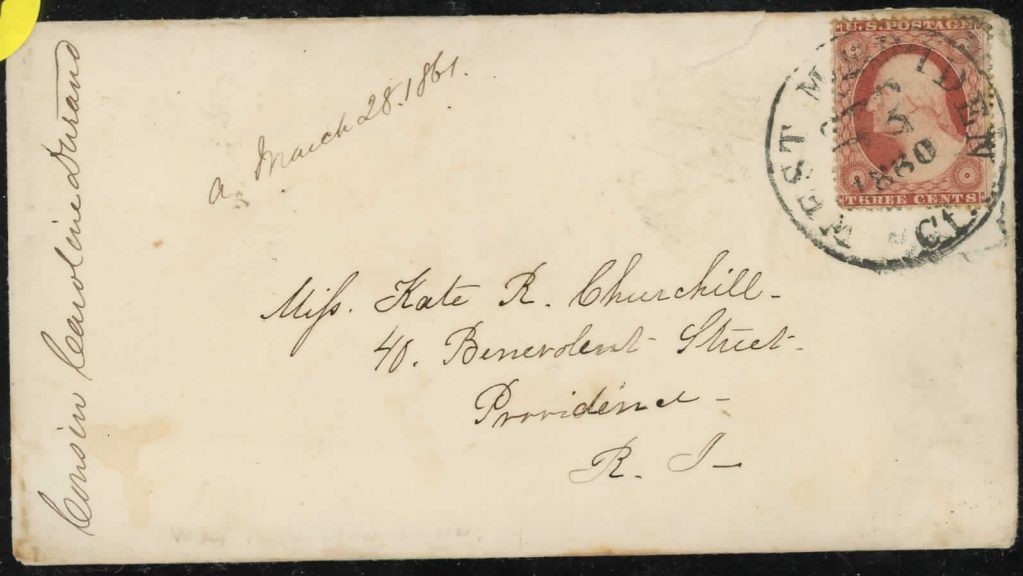 Cousin Caroline Durand
a. March 28. 1861.
U.S. POSTAGE
THREE CENTS
WEST MERIDEN
1860
CT.
Miss. Kate R. Churchill -
40. Benevolent Street -
Providence -
R. I -